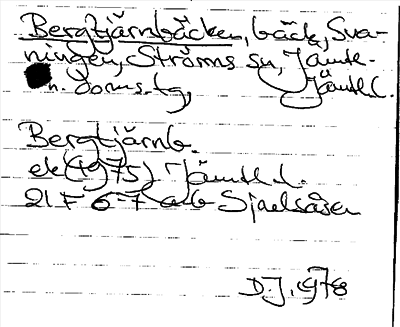 Bergtjärnbäcken, bäck, Sva-
ningen, Ströms sn, Jämtl.
n. doms.tg, Jämtl.l.
Bergtjärnb.
ek (1975) Jämtl.l.
21 F 6-7 a-b Sjaelsåsen
D.J. 1978